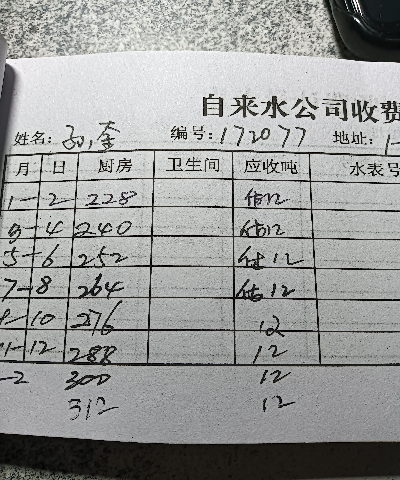 自来水公司收费
姓名: 编号: 172077 地址: 1-
月 日 厨房 卫生间 应收吨 水表号
1-2 228 估12
3-4 240 估12
5-6 252 估12
7-8 264 估12
9-10 276 12
11-12 288 12
-2 300 12
312 12